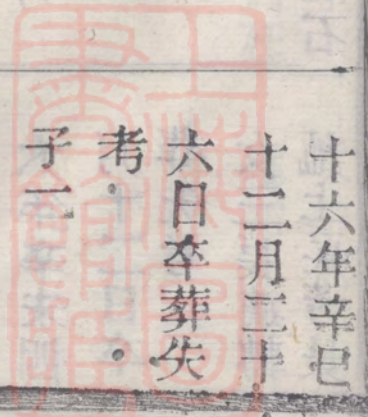 十六年辛巳
十二月二十
六日卒葬失
考。
子一